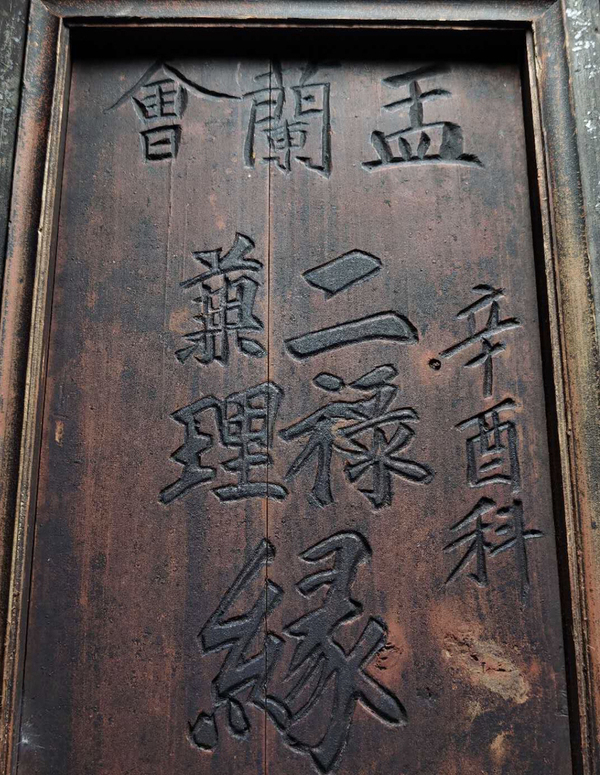 盂蘭會
辛酉科
二祿
兼理
緣